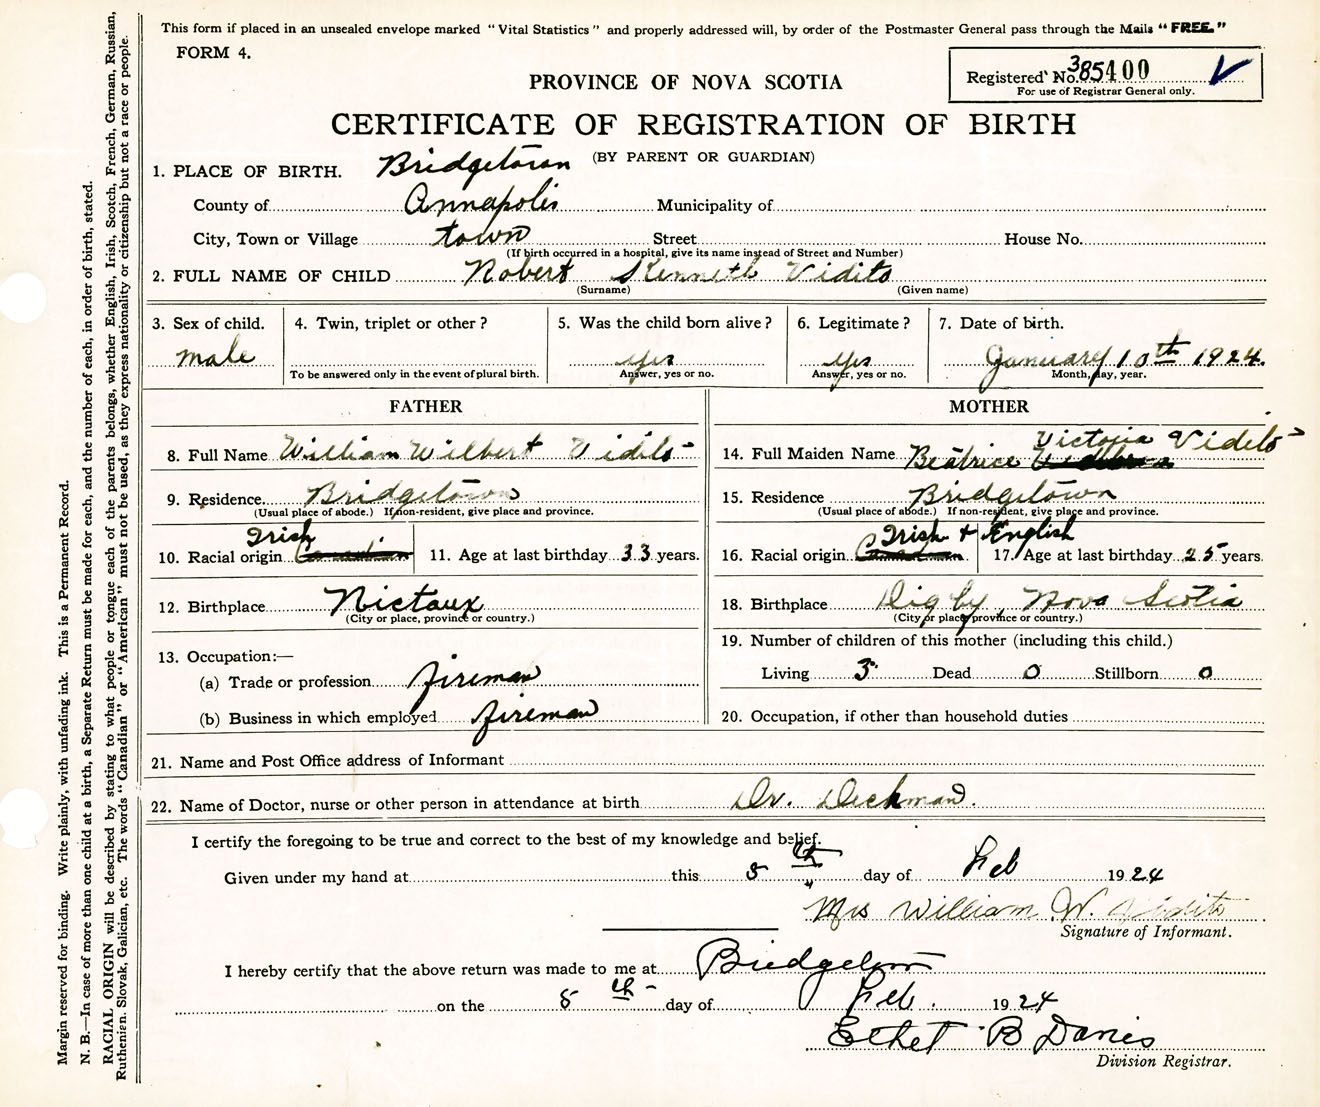 This form if placed in an unsealed envelope marked "Vital Statistics" and properly addressed will, by order of the Postmaster General pass through the Mails "FREE."
FORM 4.
Registered No. 385400
For use of Registrar General only.
PROVINCE OF NOVA SCOTIA
CERTIFICATE OF REGISTRATION OF BIRTH
(BY PARENT OR GUARDIAN)
1. PLACE OF BIRTH. Bridgetown
County of Annapolis Municipality of
City, Town or Village town Street House No.
(If birth occurred in a hospital, give its name instead of Street and Number)
2. FULL NAME OF CHILD Robert Kenneth Vidito
(Surname) (Given name)
3. Sex of child. 4. Twin, triplet or other? 5. Was the child born alive? 6. Legitimate? 7. Date of birth.
male yes yes January 10th 1924.
To be answered only in the event of plural birth. Answer, yes or no. Answer, yes or no. Month, day, year.
FATHER
8. Full Name William Wilbert Vidito
9. Residence. Bridgetown
(Usual place of abode.) If non-resident, give place and province.
Irish
10. Racial origin 11. Age at last birthday 33 years.
12. Birthplace Nictaux
(City or place, province or country.)
13. Occupation:—
(a) Trade or profession fireman
(b) Business in which employed fireman
MOTHER
Victoria Vidito
14. Full Maiden Name Beatrice
15. Residence Bridgetown
(Usual place of abode.) If non-resident, give place and province.
Irish + English
16. Racial origin 17. Age at last birthday 25 years.
18. Birthplace Digby, Nova Scotia
(City or place, province or country.)
19. Number of children of this mother (including this child.)
Living 3 Dead 0 Stillborn 0
20. Occupation, if other than household duties
21. Name and Post Office address of Informant
22. Name of Doctor, nurse or other person in attendance at birth Dr. Deckman.
I certify the foregoing to be true and correct to the best of my knowledge and belief.
Given under my hand at this 8th day of Feb 1924
Mrs William W. Vidito
Signature of Informant.
I hereby certify that the above return was made to me at Bridgetown
on the 8th day of Feb. 1924
Ethel B Davis
Division Registrar.
Margin reserved for binding. Write plainly, with unfading ink. This is a Permanent Record.
N. B.—In case of more than one child at a birth, a Separate Return must be made for each, and the number of each, in order of birth, stated.
RACIAL ORIGIN will be described by stating to what people or tongue each of the parents belongs, whether English, Irish, Scotch, French, German, Russian,
Ruthenian, Slovak, Galician, etc. The words "Canadian" or "American" must not be used, as they express nationality or citizenship but not a race or people.